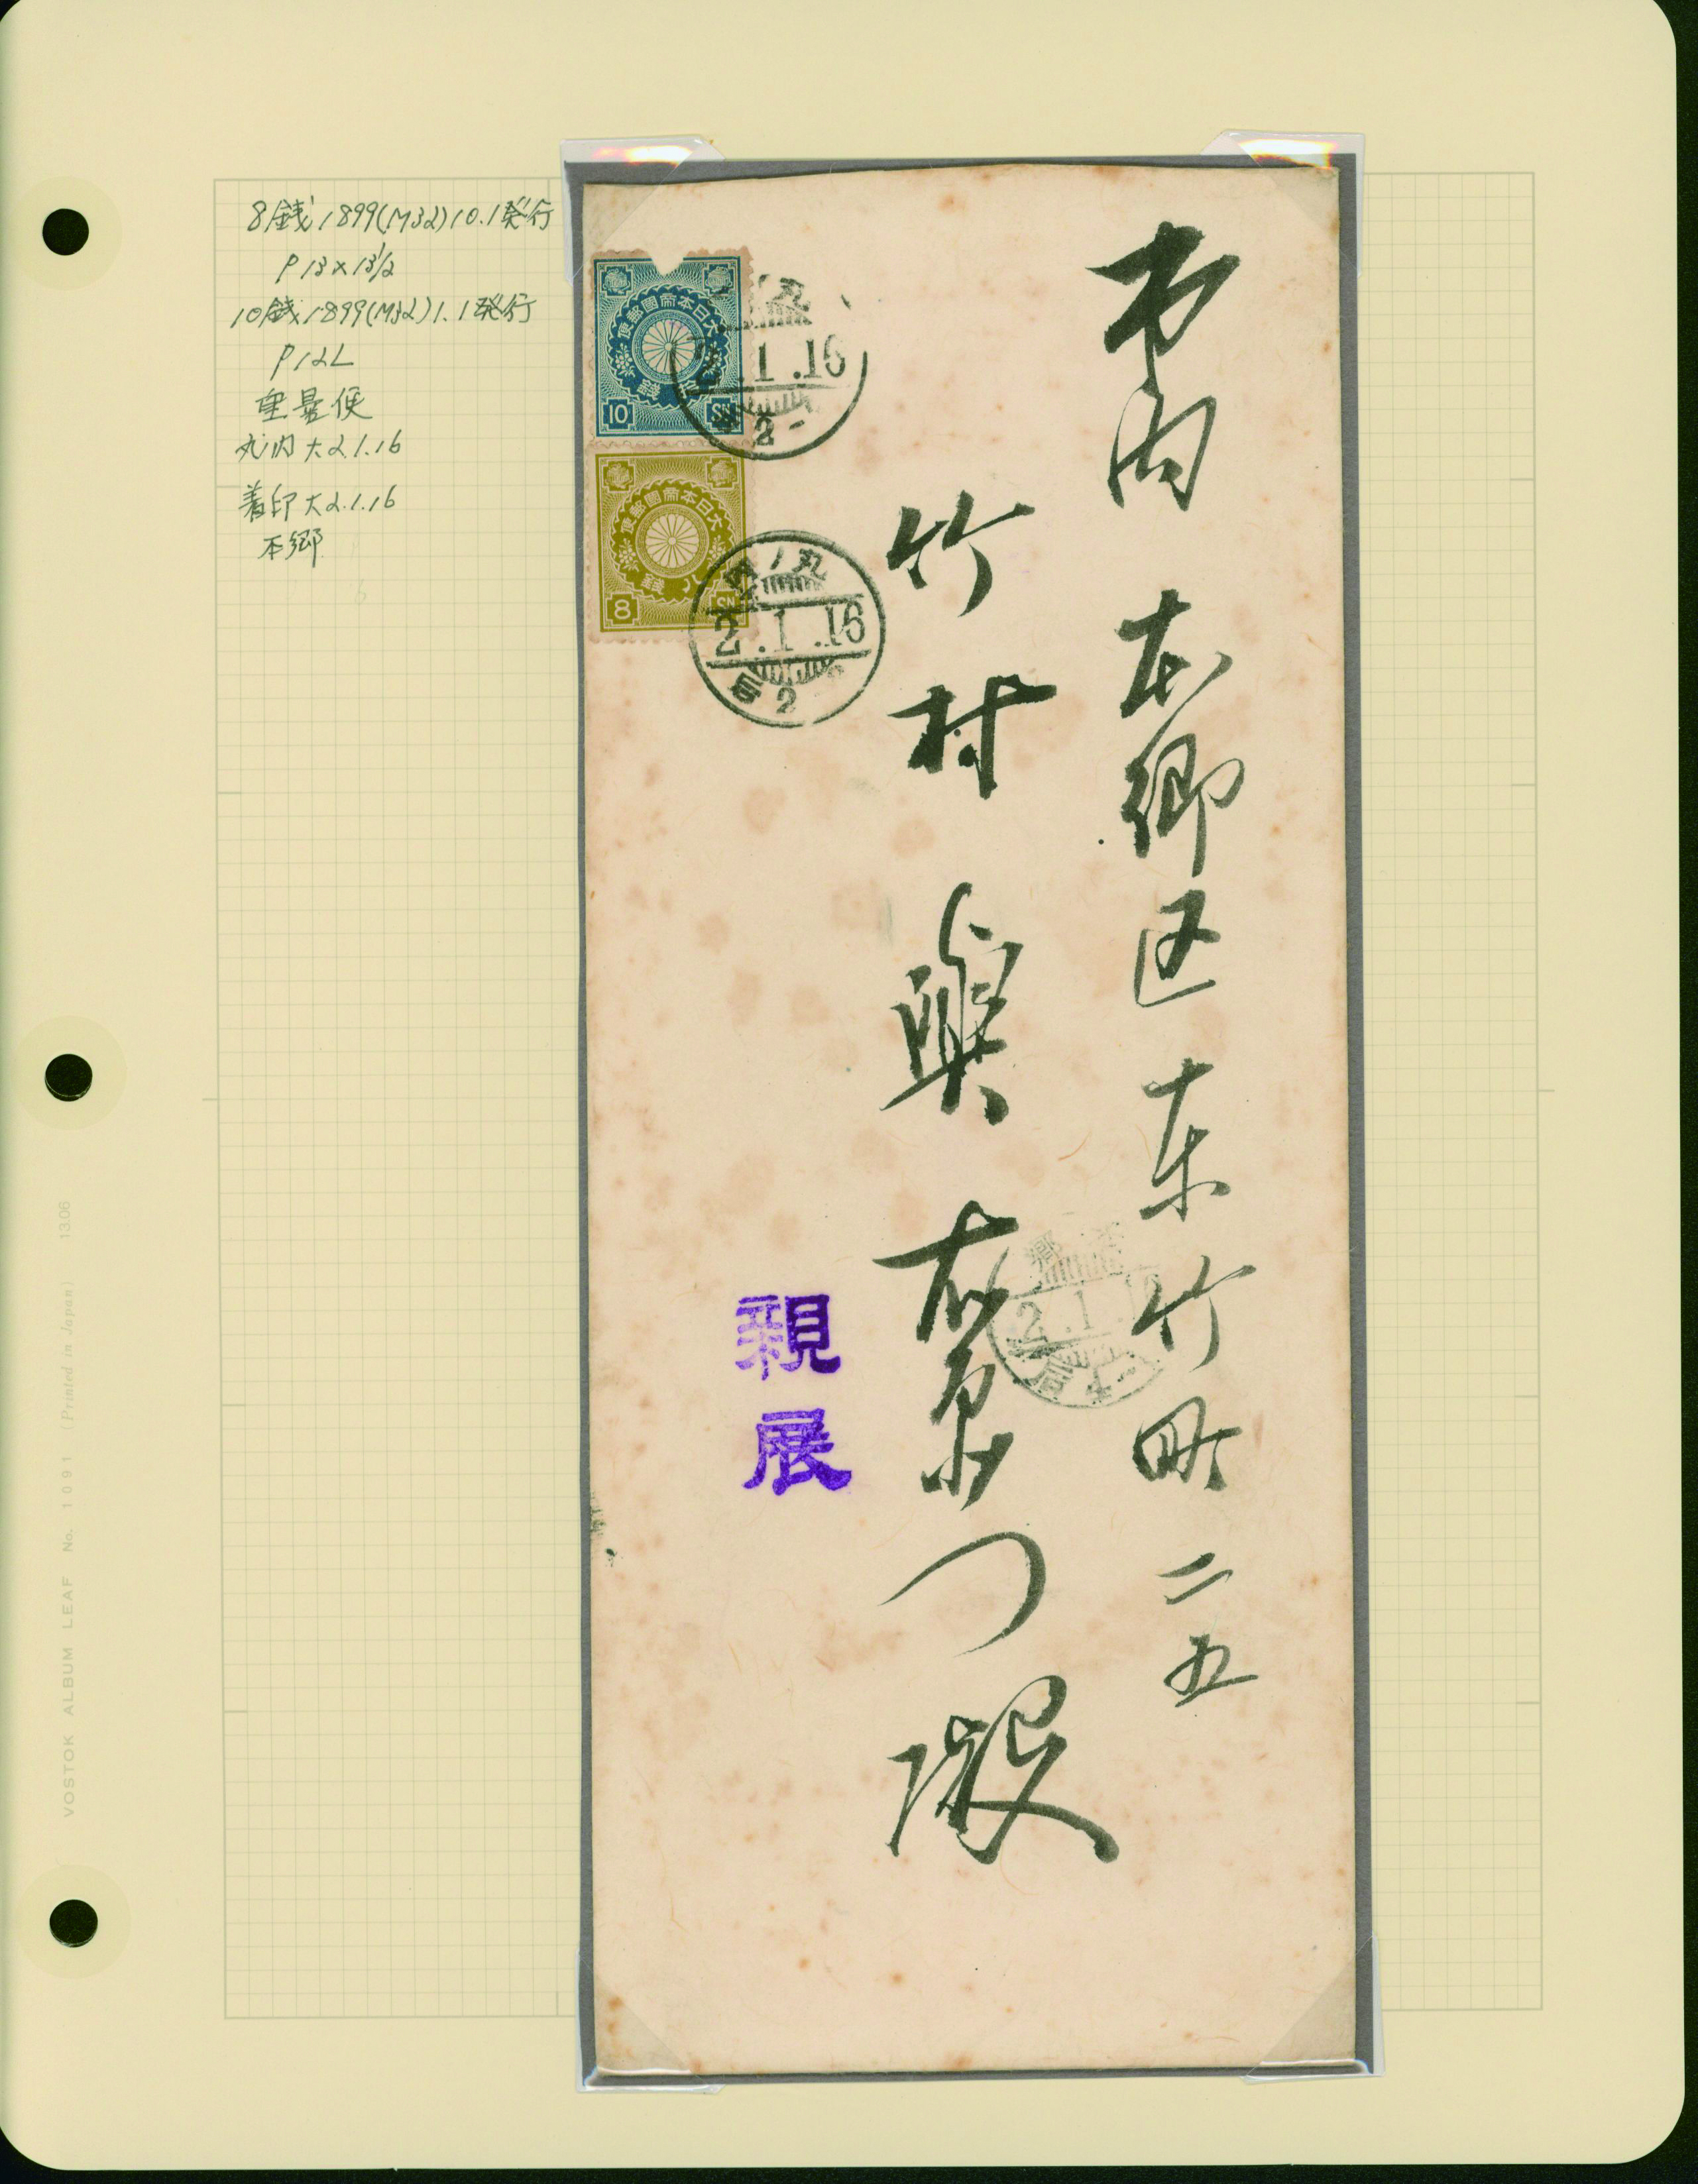 8銭 1899(M32)10.1発行
P13×13½
10銭 1899(M32)1.1発行
P12L
重量便
丸ノ内 大2.1.16
着印 大2.1.16
本郷
市内 本郷区東竹町二五
竹村與右衛门殿
親展
大日本帝國郵便
10 SN
大日本帝國郵便
8 SN
丸
.1.16
2
丸ノ内
2.1.16
2
本郷
2.1.1
VOSTOK ALBUM LEAF No. 1091 (Printed in Japan) 13.06